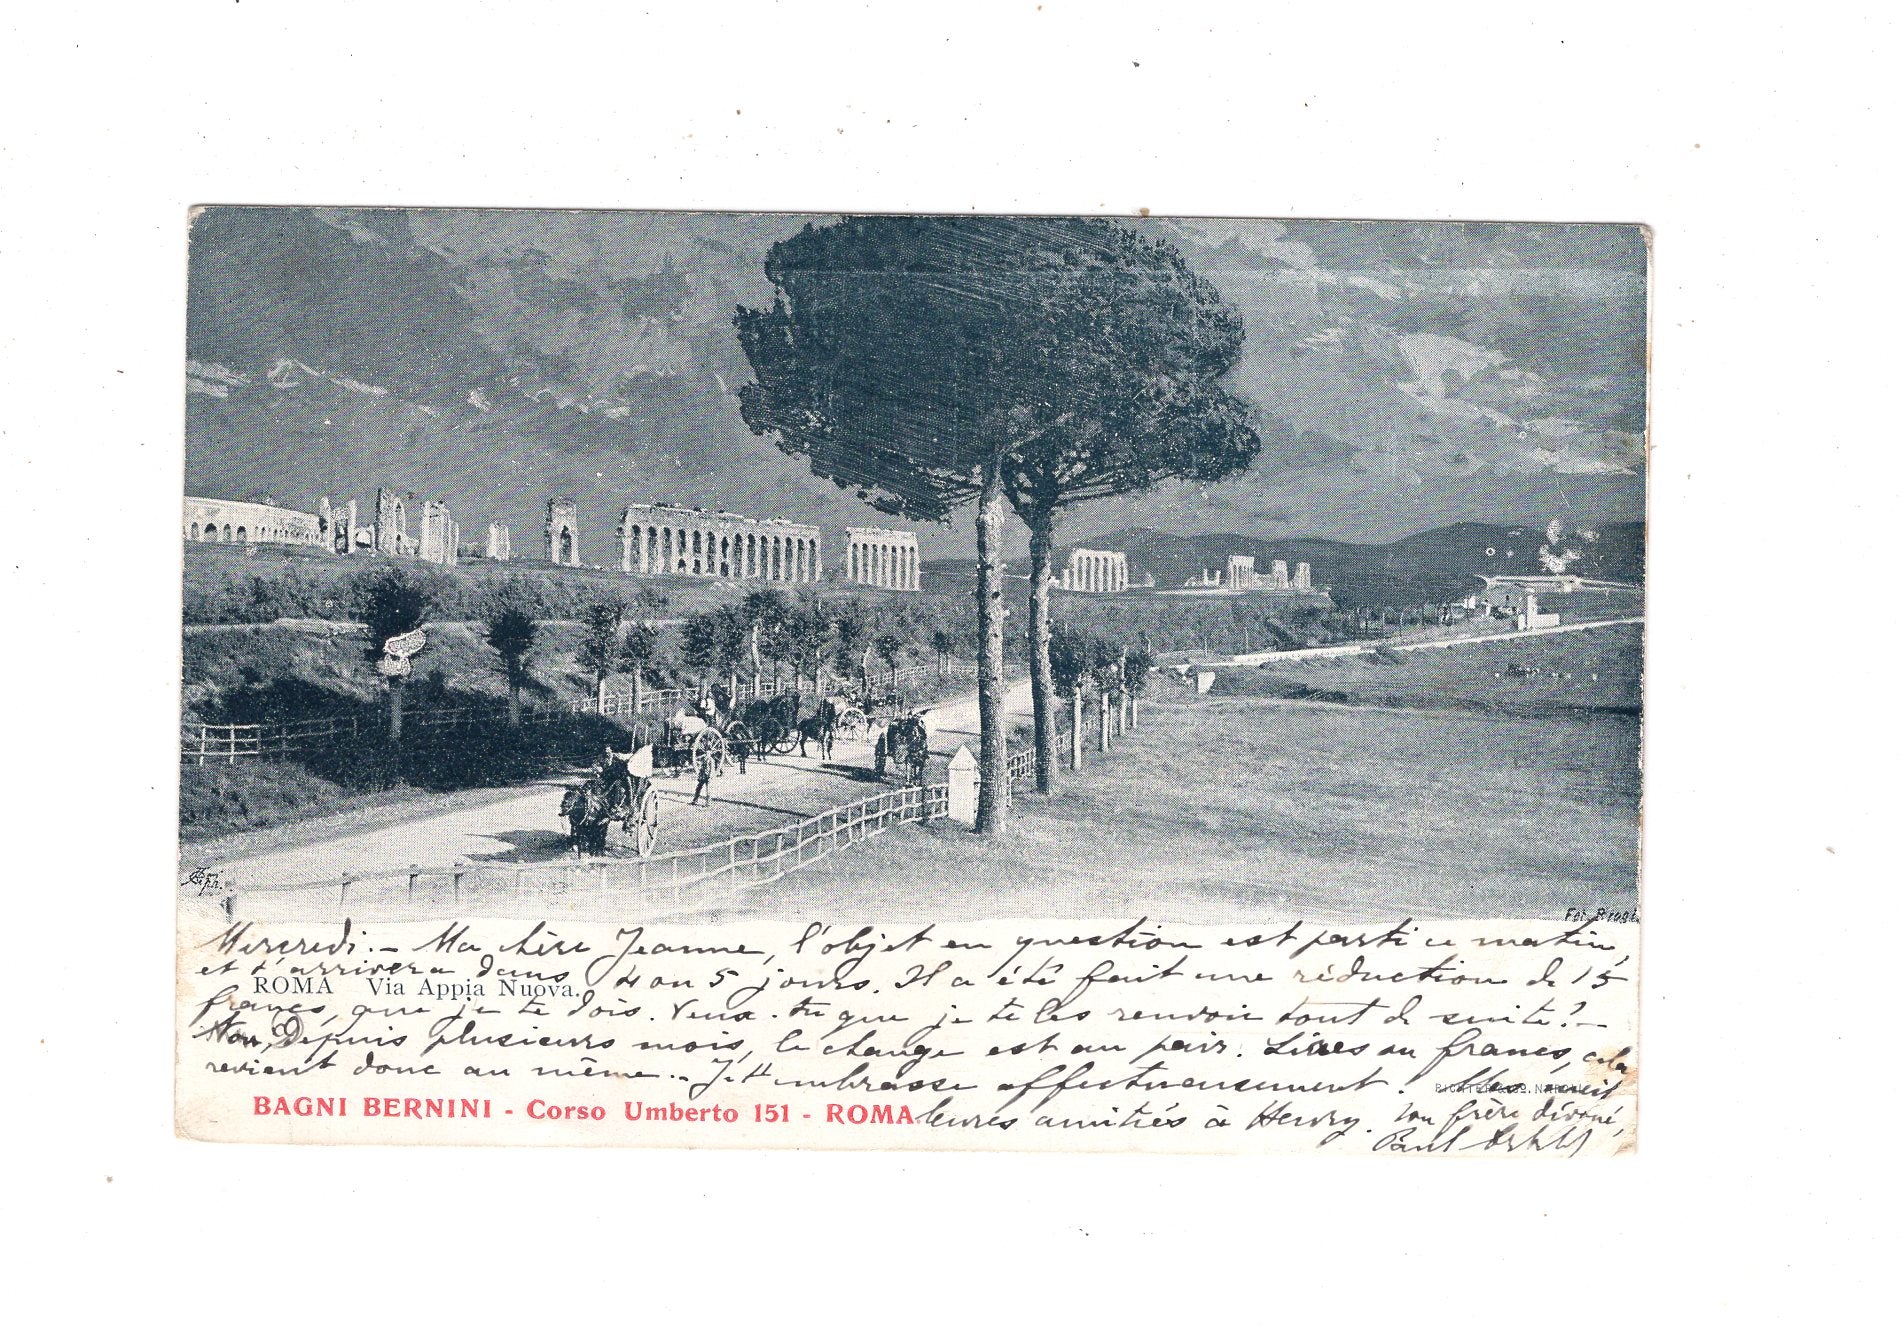 ph.
Fot. Brogi
Mercredi. - Ma chère Jeanne, l'objet en question est parti ce matin,
et t'arrivera dans 4 ou 5 jours. Il a été fait une réduction de 15
ROMA Via Appia Nuova.
francs, que je te dois. Veux-tu que je te les renvoie tout de suite? -
Non, Depuis plusieurs mois, le change est au pair. Lires ou francs, cela
revient donc au même. - Je t'embrasse affectueusement!
RICHTER & Co. NAPOLI
BAGNI BERNINI - Corso Umberto 151 - ROMA
leures amitiés à Henry. ton frère dévoué,
Paul